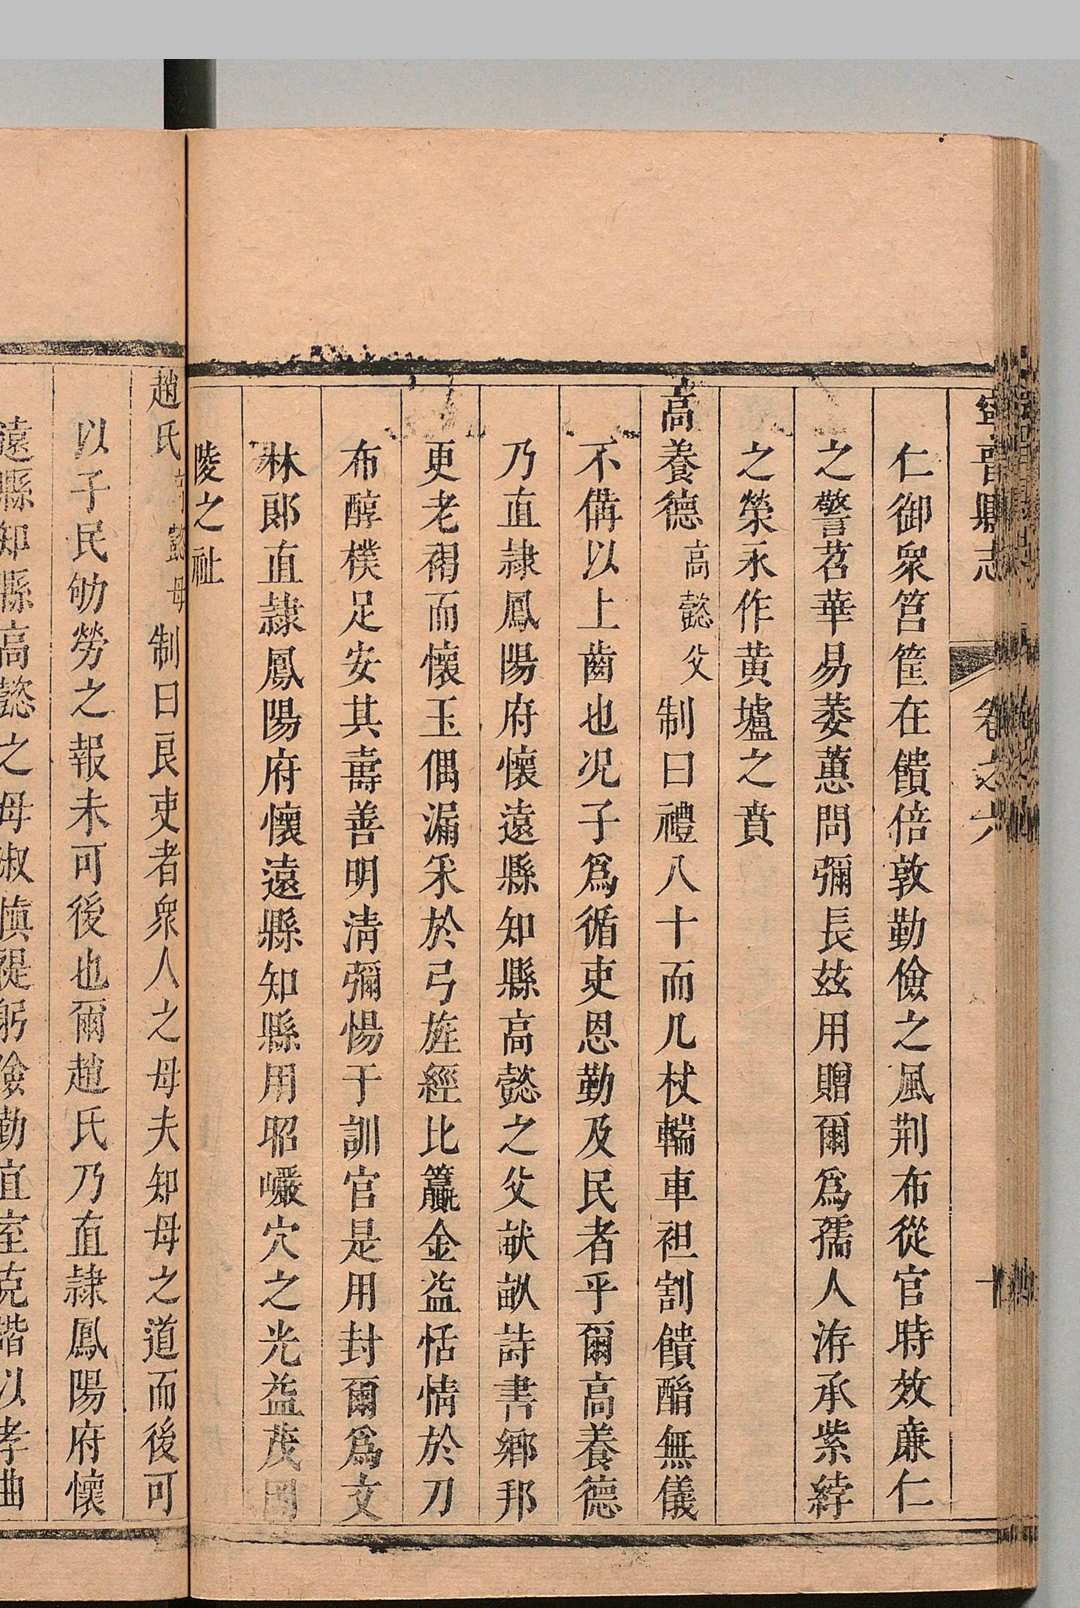 寧晉縣志 卷之六 十
仁御眾筥筐在饋倍敦勤儉之風荆布從官時效亷仁
之警苕華易萎蕙問彌長玆用贈爾爲孺人洊承紫綍
之榮永作黄壚之賁
高養德高懿父 制曰禮八十而几杖輲車袒割饋酳無儀
不偹以上齒也况子爲循吏恩勤及民者乎爾高養德
乃直隷鳳陽府懷遠縣知縣高懿之父畎畝詩書鄉邦
更老褐而懷玉偶漏采於弓旌經比籯金益恬情於刀
布醇樸足安其壽善明淸彌惕于訓官是用封爾爲文
林郞直隷鳳陽府懷遠縣知縣用昭巗穴之光益茂岡
陵之祉
趙氏高懿母 制曰良吏者衆人之母夫知母之道而後可
以子民劬勞之報未可後也爾趙氏乃直隷鳳陽府懷
遠縣知縣高懿之母淑慎禔躬儉勤宜室克諧以孝曲